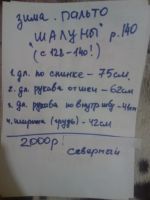 зима. ПАЛЬТО
"ШАЛУНЫ" р.140
(с 128-140!)
1. дл. по спинке - 75см.
2. дл. рукава от шеи - 62см
3. дл. рукава по внутр шву - 46см
4. ширина (грудь) - 42см
2000р!
Северный